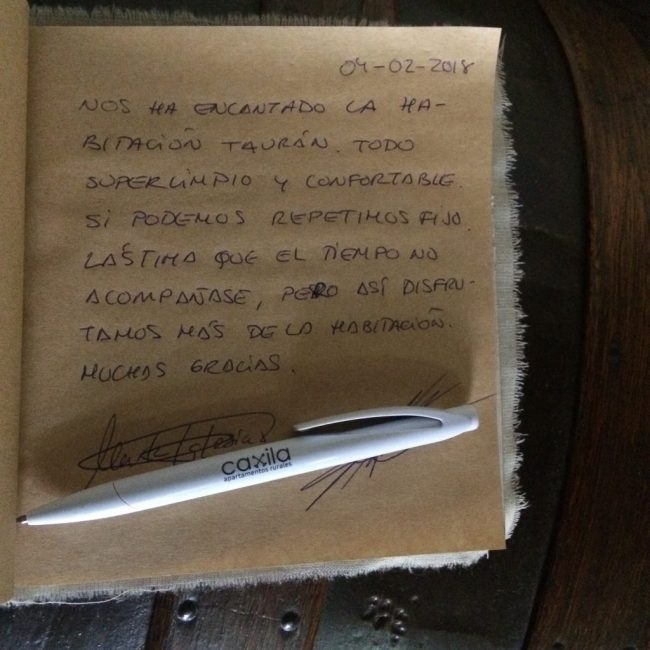 04-02-2018
NOS HA ENCANTADO LA HA-
BITACIÓN TAURÁN. TODO
SUPERLIMPIO Y CONFORTABLE.
SI PODEMOS REPETIMOS FIJO.
LÁSTIMA QUE EL TIEMPO NO
ACOMPAÑASE, PERO ASÍ DISFRU-
TAMOS MÁS DE LA HABITACIÓN.
MUCHAS GRACIAS.
Iglesias
caxila
apartamentos rurales